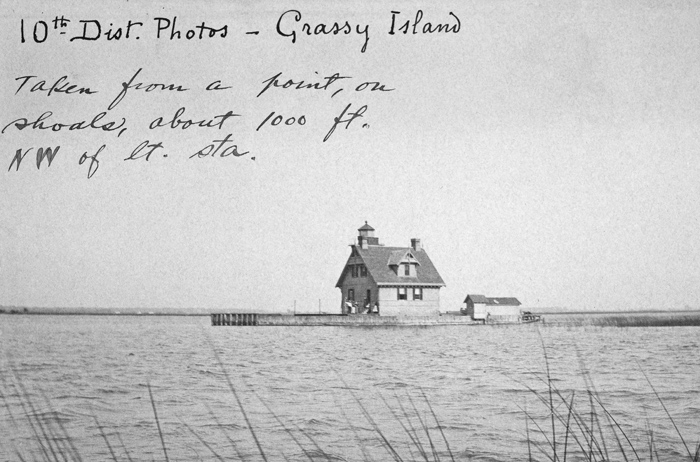 10th Dist. Photos - Grassy Island
Taken from a point, on
shoals, about 1000 ft.
NW of lt. sta.